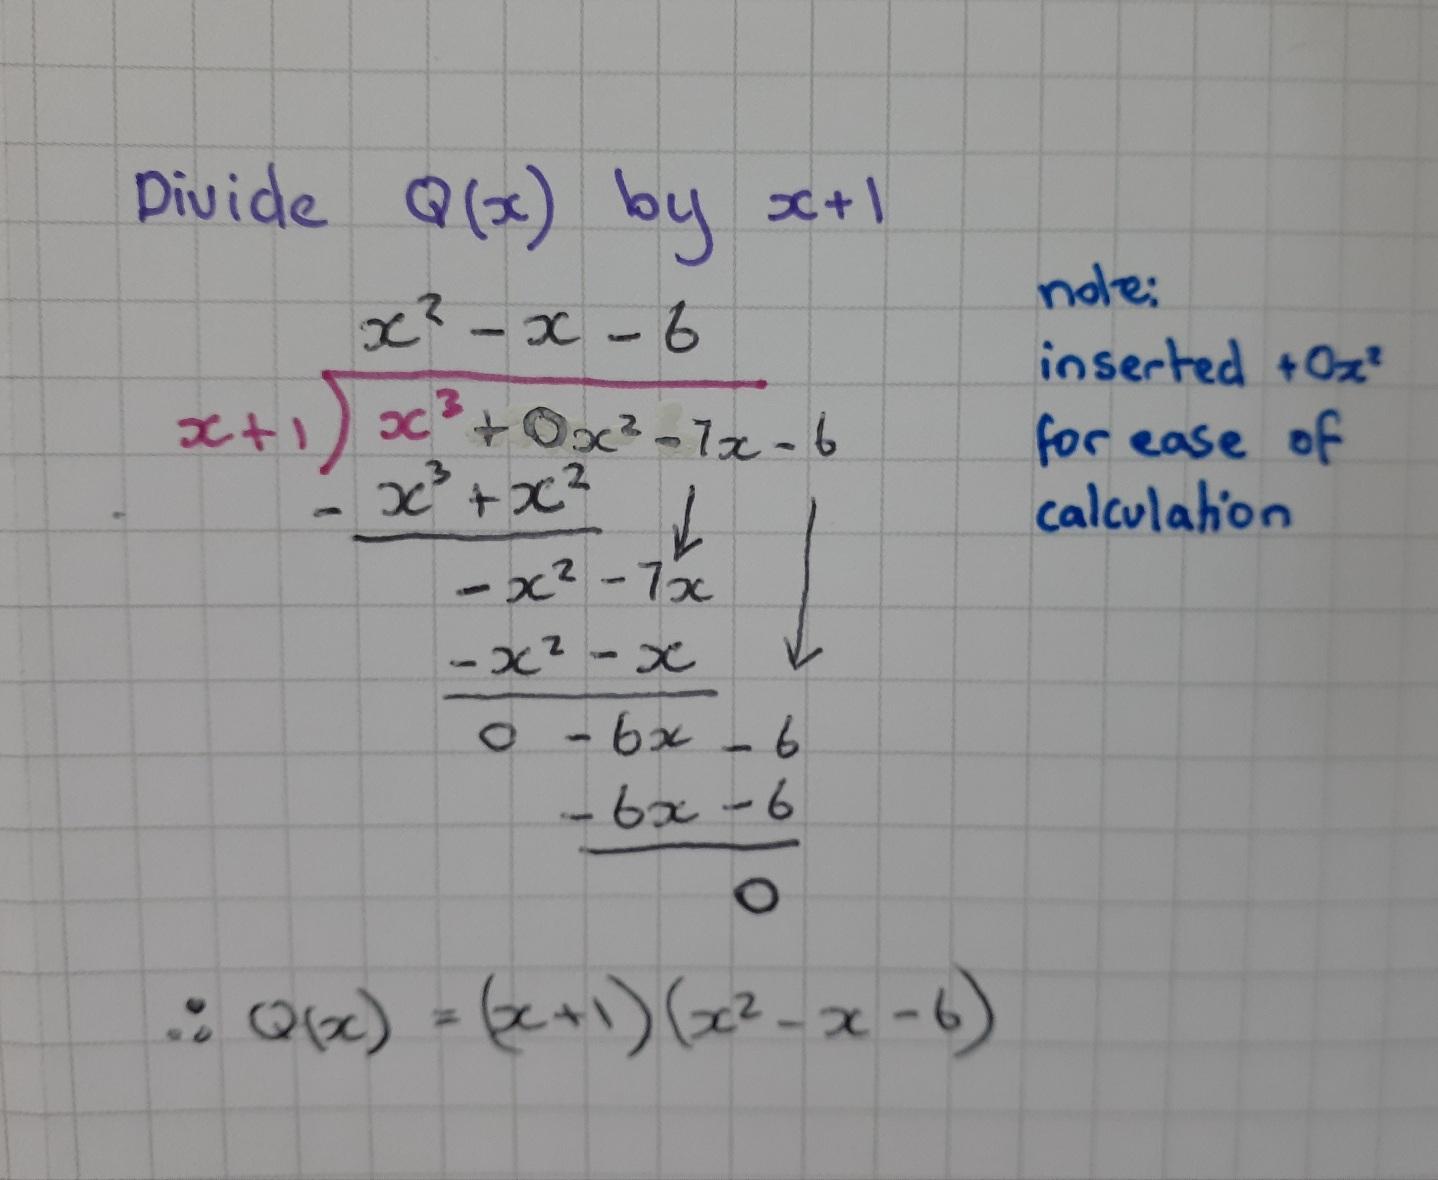 Divide Q(x) by x+1
x² - x - 6
x+1 ) x³ + 0x² - 7x - 6
- x³ + x²
- x² - 7x
- x² - x
0 - 6x - 6
- 6x - 6
0
∴ Q(x) = (x+1)(x² - x - 6)
note:
inserted +0x²
for ease of
calculation